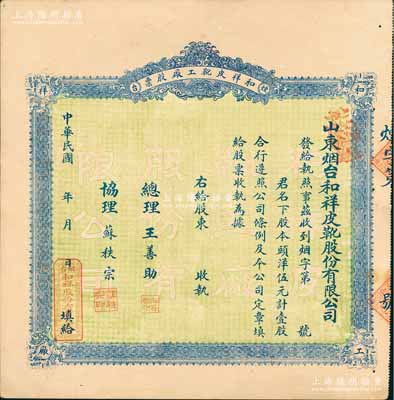 烟台和祥皮靴工厰股票
和
祥
工
厰
山東烟台和祥皮靴股份有限公司
發給執照事茲收到烟字第 號
君名下股本頭洋伍元計壹股
合行遵照公司條例及本公司定章填
給股票收執為據
右給股東 收執
總理 王善助
協理 蘇秩宗
中華民國 年 月 日 填給
烟字第
號